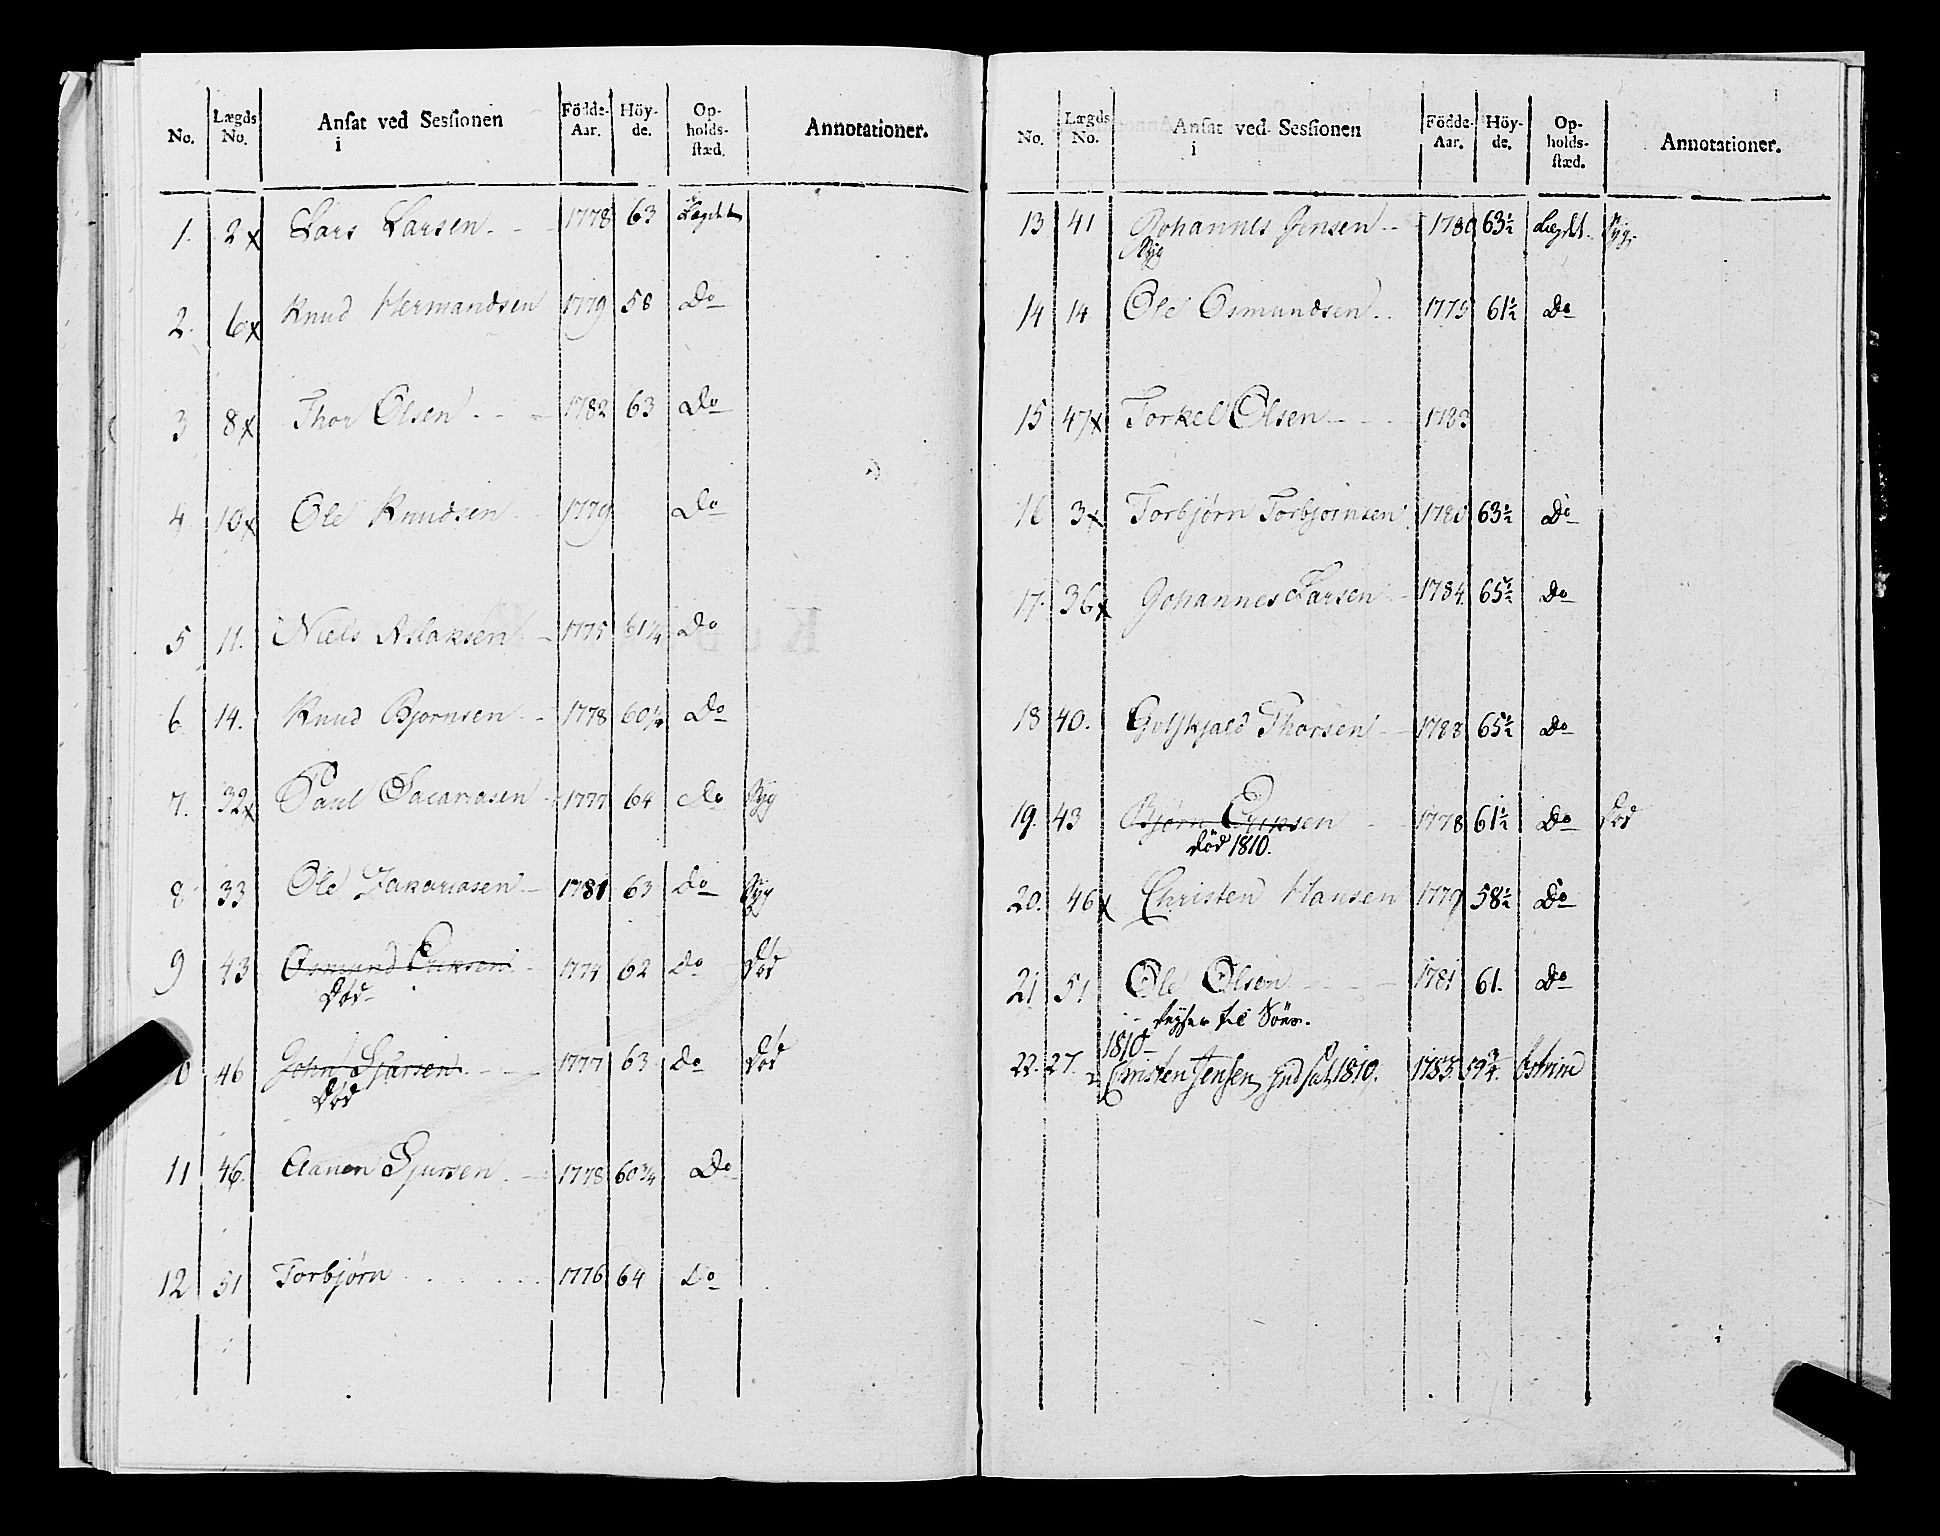 No. Lægds No. Ansat ved Sessionen i Födde-Aar. Höy-de. Op-holds-stæd. Annotationer.
1. 2x Lars Larsen 1778 63 Lægdet
2. 6x Knud Hermandsen 1779 58 Do
3 8x Thor Olsen 1782 63 Do
4 10x Ole Knudsen 1779 Do
5 11. Niels Aslaksen 1775 61 1/4 Do
6 14. Knud Bjornsen 1778 60 1/2 Do
7. 32x Paul Sacariasen 1777 64 Do Syg
8 33 Ole Zakariasen 1781 63 Do Syg
9 43 Osmund Eriksen 1774 62 Do Död
Död
10 46 John Sjursen 1777 63 Do Död
Död
11 46. Aanen Sjursen 1778 60 3/4 Do
12 51 Torbjørn 1776 64 Do
No. Lægds No. Ansat ved Sessionen i Födde-Aar. Höy-de. Op-holds-stæd. Annotationer.
13 41 Johannes Jensen 1780 63 1/2 Lægdet Syg
Syg
14 14 Ole Osmundsen 1775 61 1/2 Do
15 47x Torkel Olsen 1783
16 3x Torbjørn Torbjornsen 63 1/2 Do
17. 36x Johannes Larsen 1784 65 1/2 Do
18 40. Thorsen 1788 65 1/2 Do
19. 43 Bjørn Eriksen 1778 61 1/2 Do Död
död 1810.
20. 46x Christen Hansen 1779 58 1/2 Do
21 51 Ole Olsen 1781 61. Do
til Söes.
1810
22. 27. Christen Jensen Indsat 1810. 1785. 59 3/4